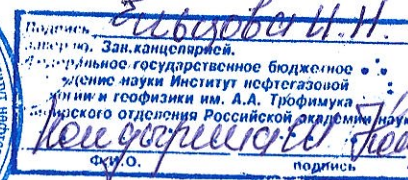 Подпись Ельцова И.Н.
заверяю. Зав.канцелярией.
Федеральное государственное бюджетное
учреждение науки Институт нефтегазовой
геологии и геофизики им. А.А. Трофимука
Сибирского отделения Российской академии наук
Ф.И.О. подпись